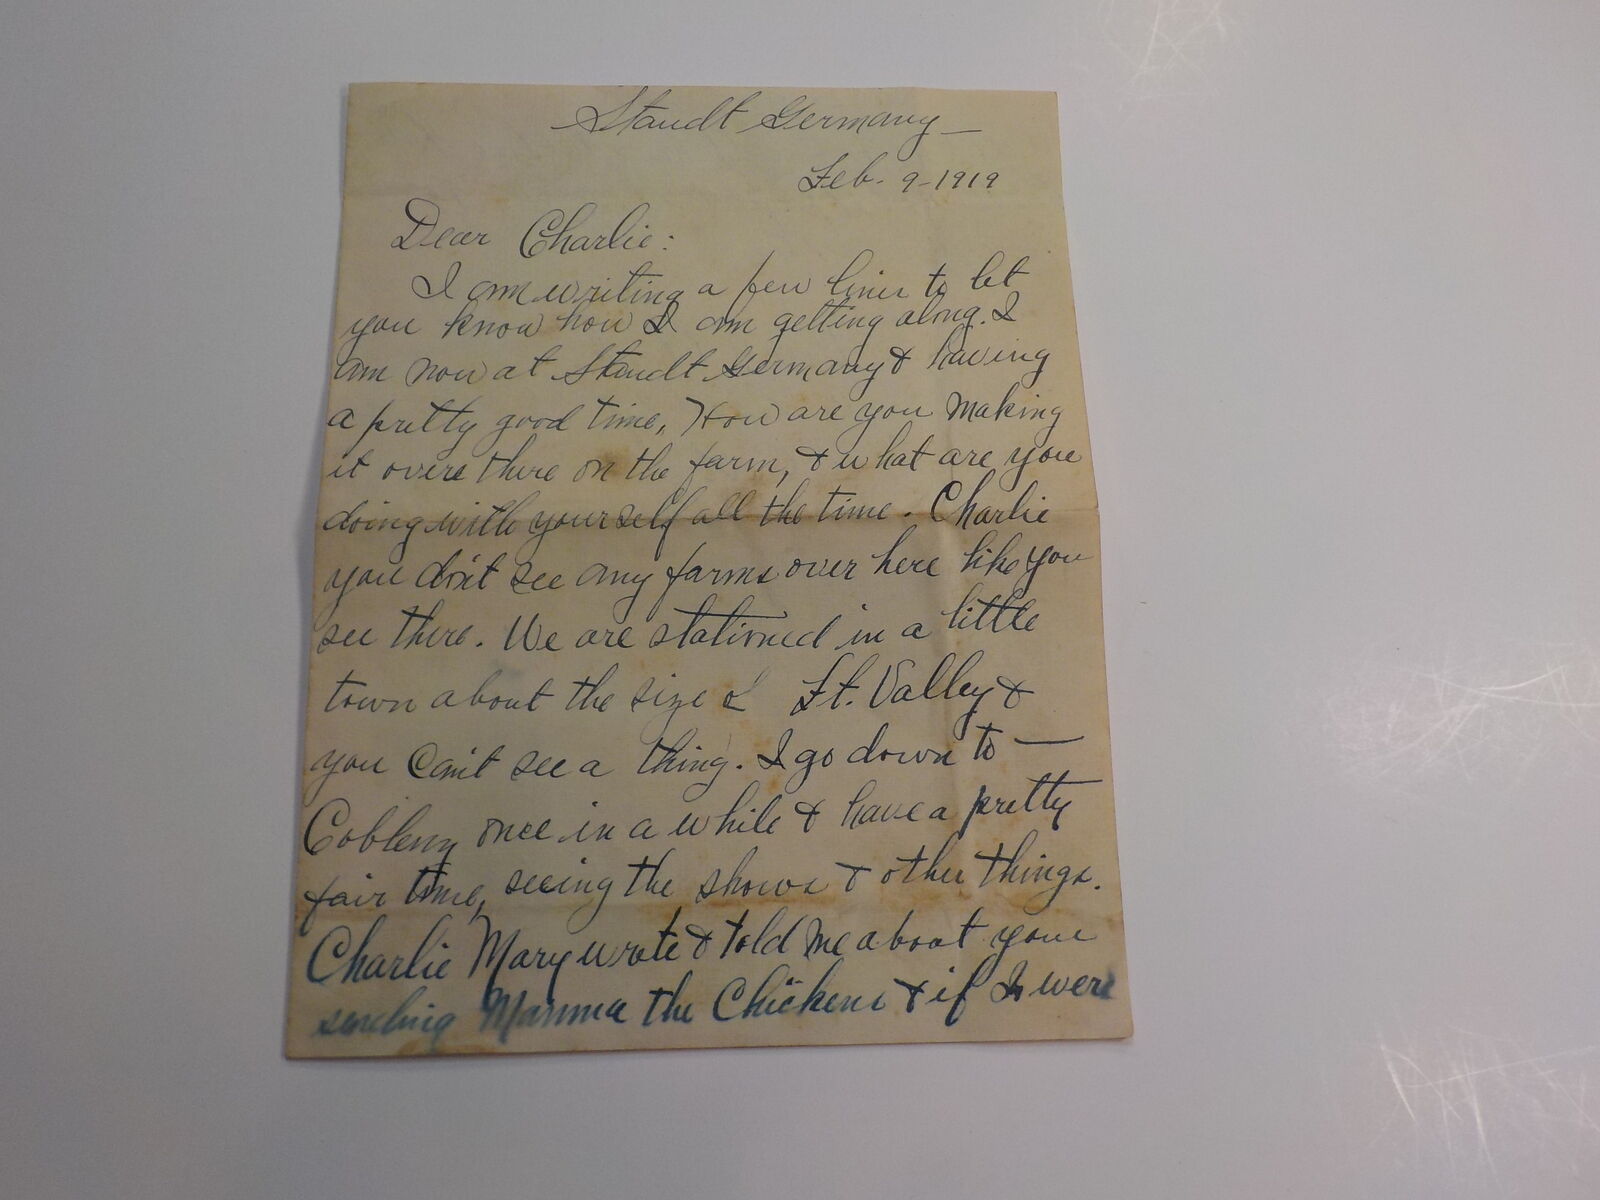 Staudt Germany —
Feb. 9-1919
Dear Charlie:
I am writing a few lines to let
you know how I am getting along. I
am now at Staudt Germany & having
a pretty good time, How are you making
it over there on the farm, & what are you
doing with yourself all the time. Charlie
you don't see any farms over here like you
see there. We are stationed in a little
town about the size of Ft. Valley &
you can't see a thing. I go down to —
Coblenz once in a while & have a pretty
fair time, seeing the shows & other things.
Charlie Mary wrote & told me about your
sending Mamma the Chickens & if I were